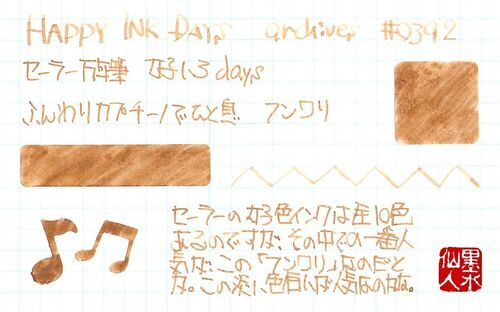 HAPPY INK DAYS archives #0392
セーラー万年筆 なないろdays
ふんわりカプチーノでひと息 フンワリ
セーラーの名色インクは全10色
あるのですが、その中での一番人
気が、この「フンワリ」なのだと
か。この淡い色合いが人気なのかな。
墨水
仙人